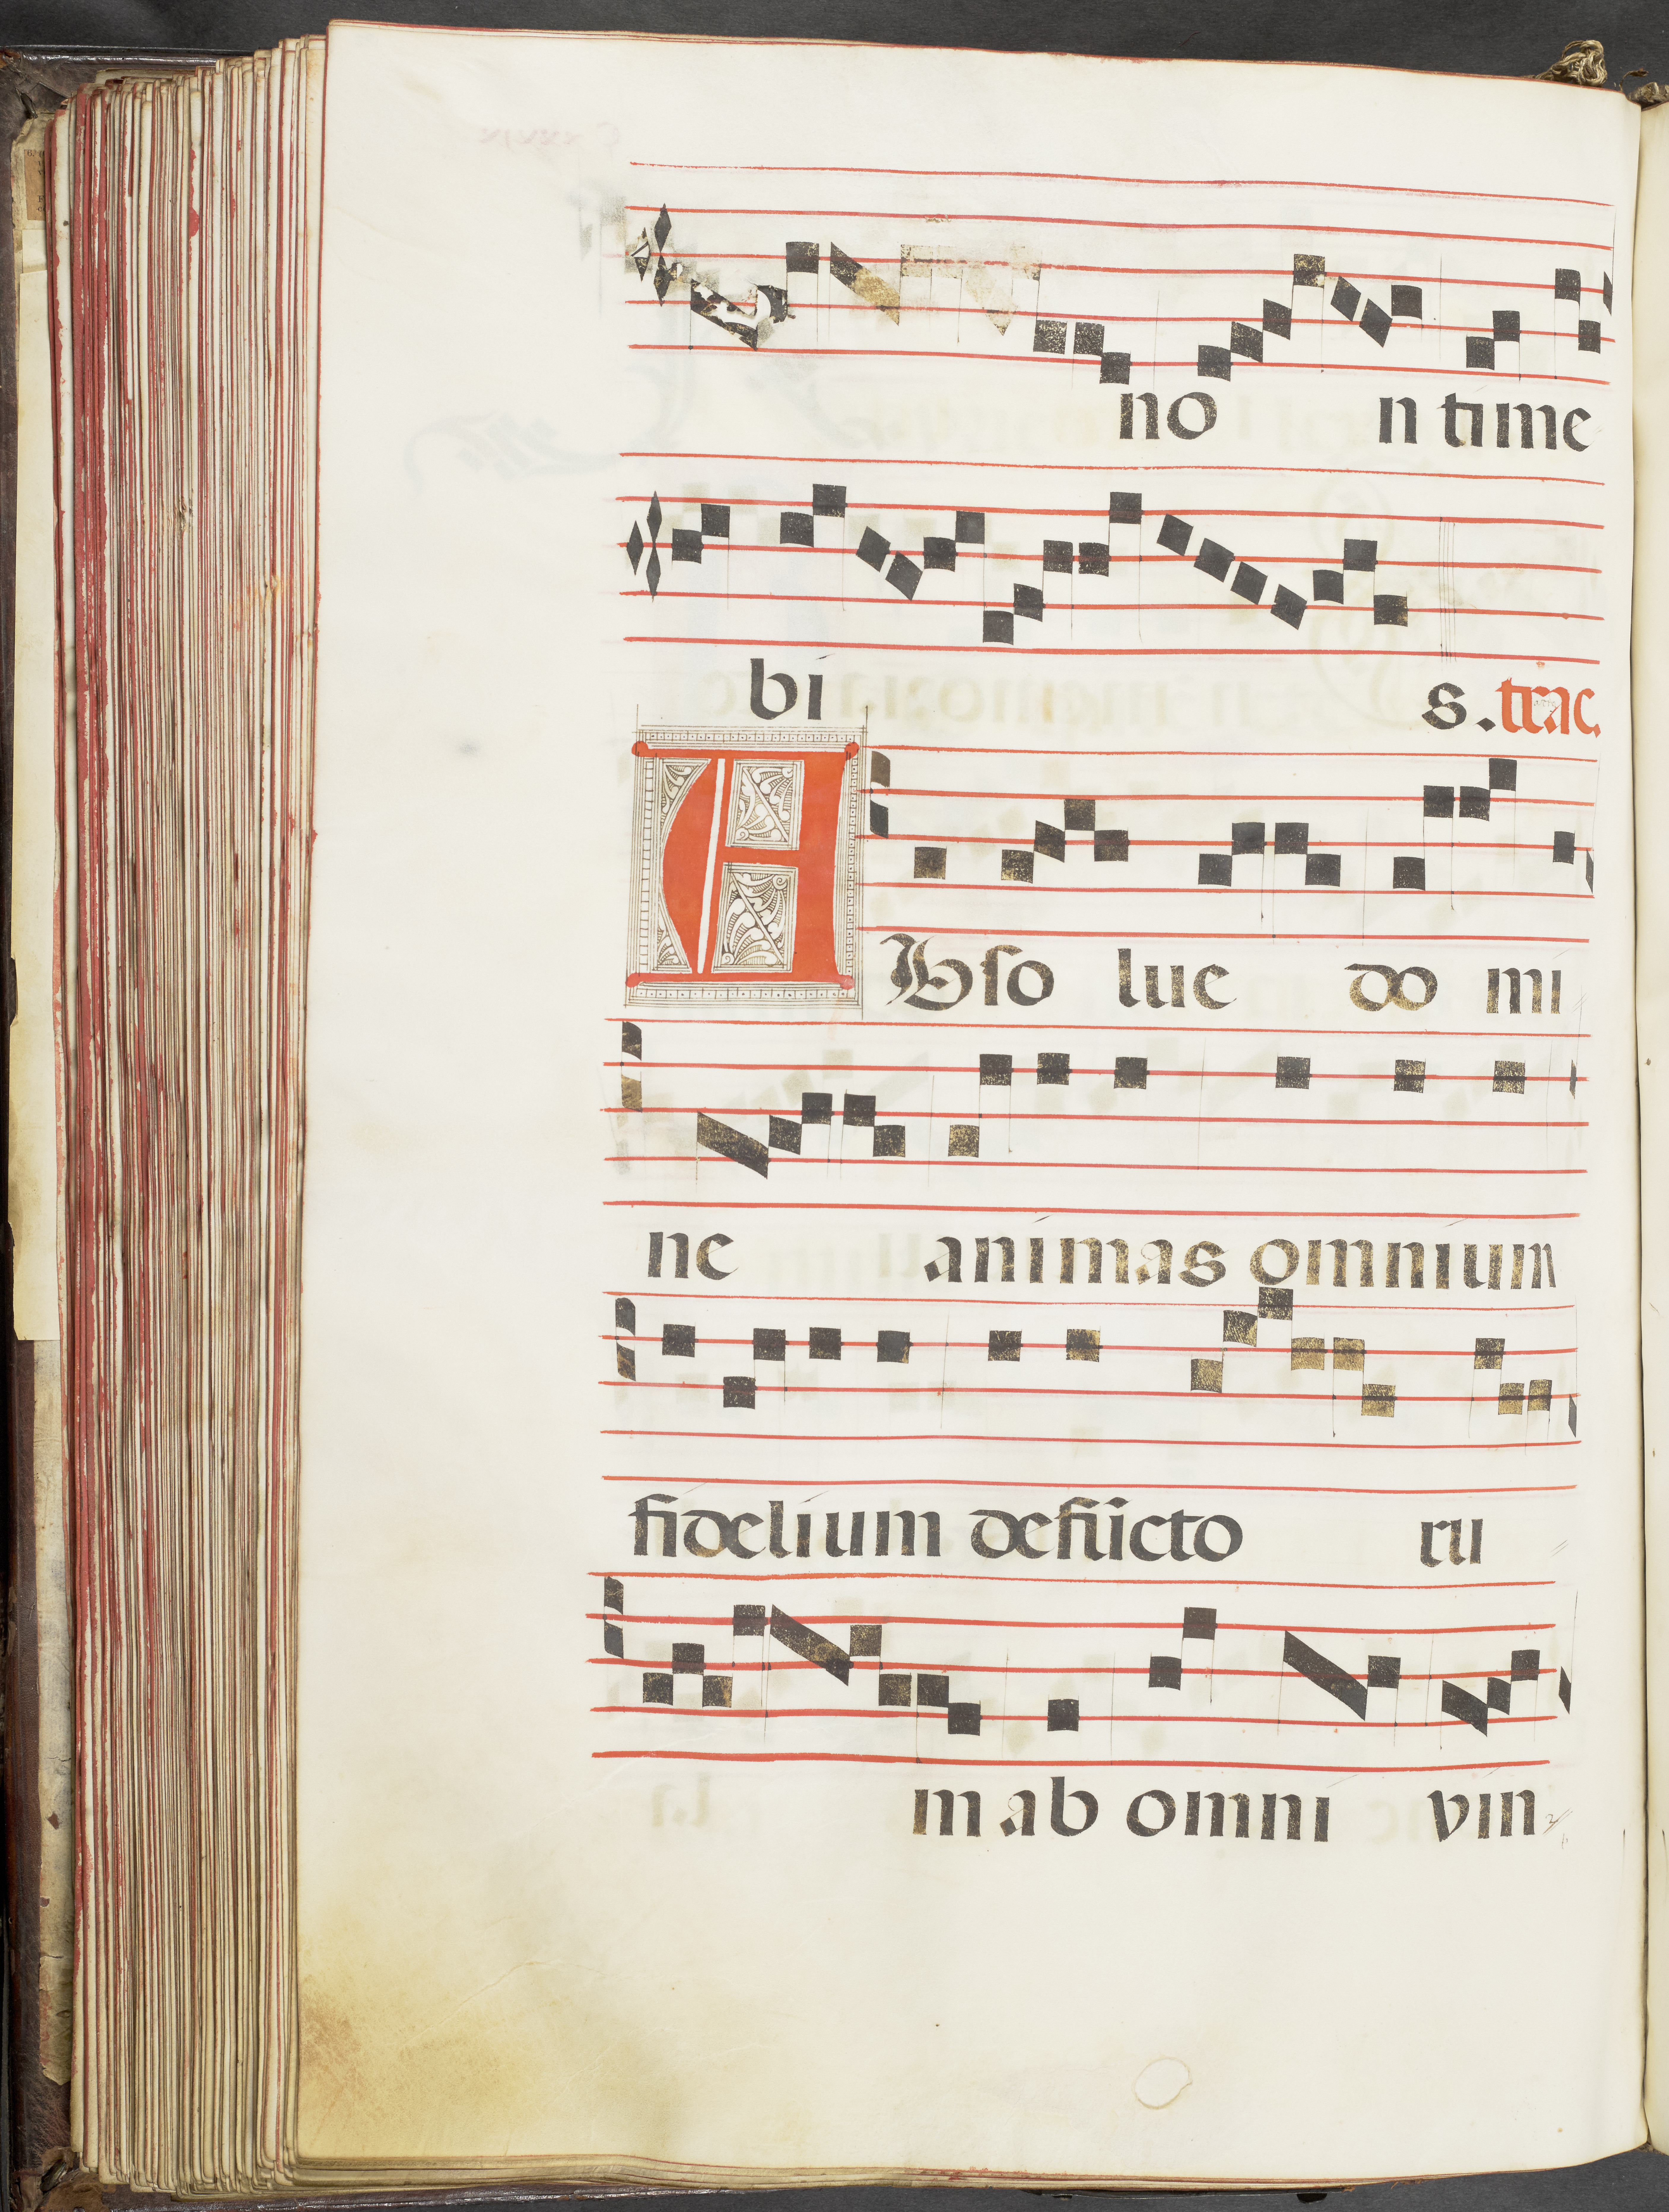 no n time
bi s. trac.
Abso lue do mi
ne animas omnium
fidelium defūcto ru
m ab omni vin